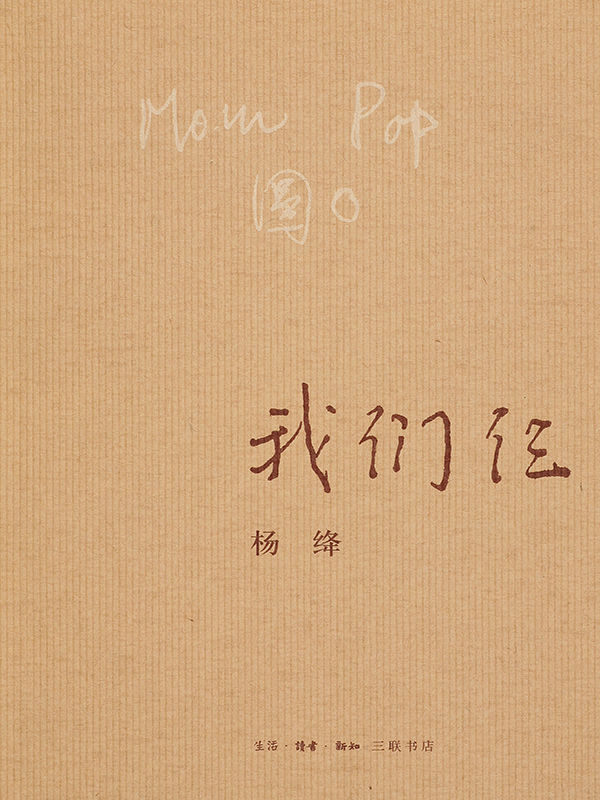 Mom Pop
圆〇
我们仨
杨 绛
生活·讀書·新知 三联书店